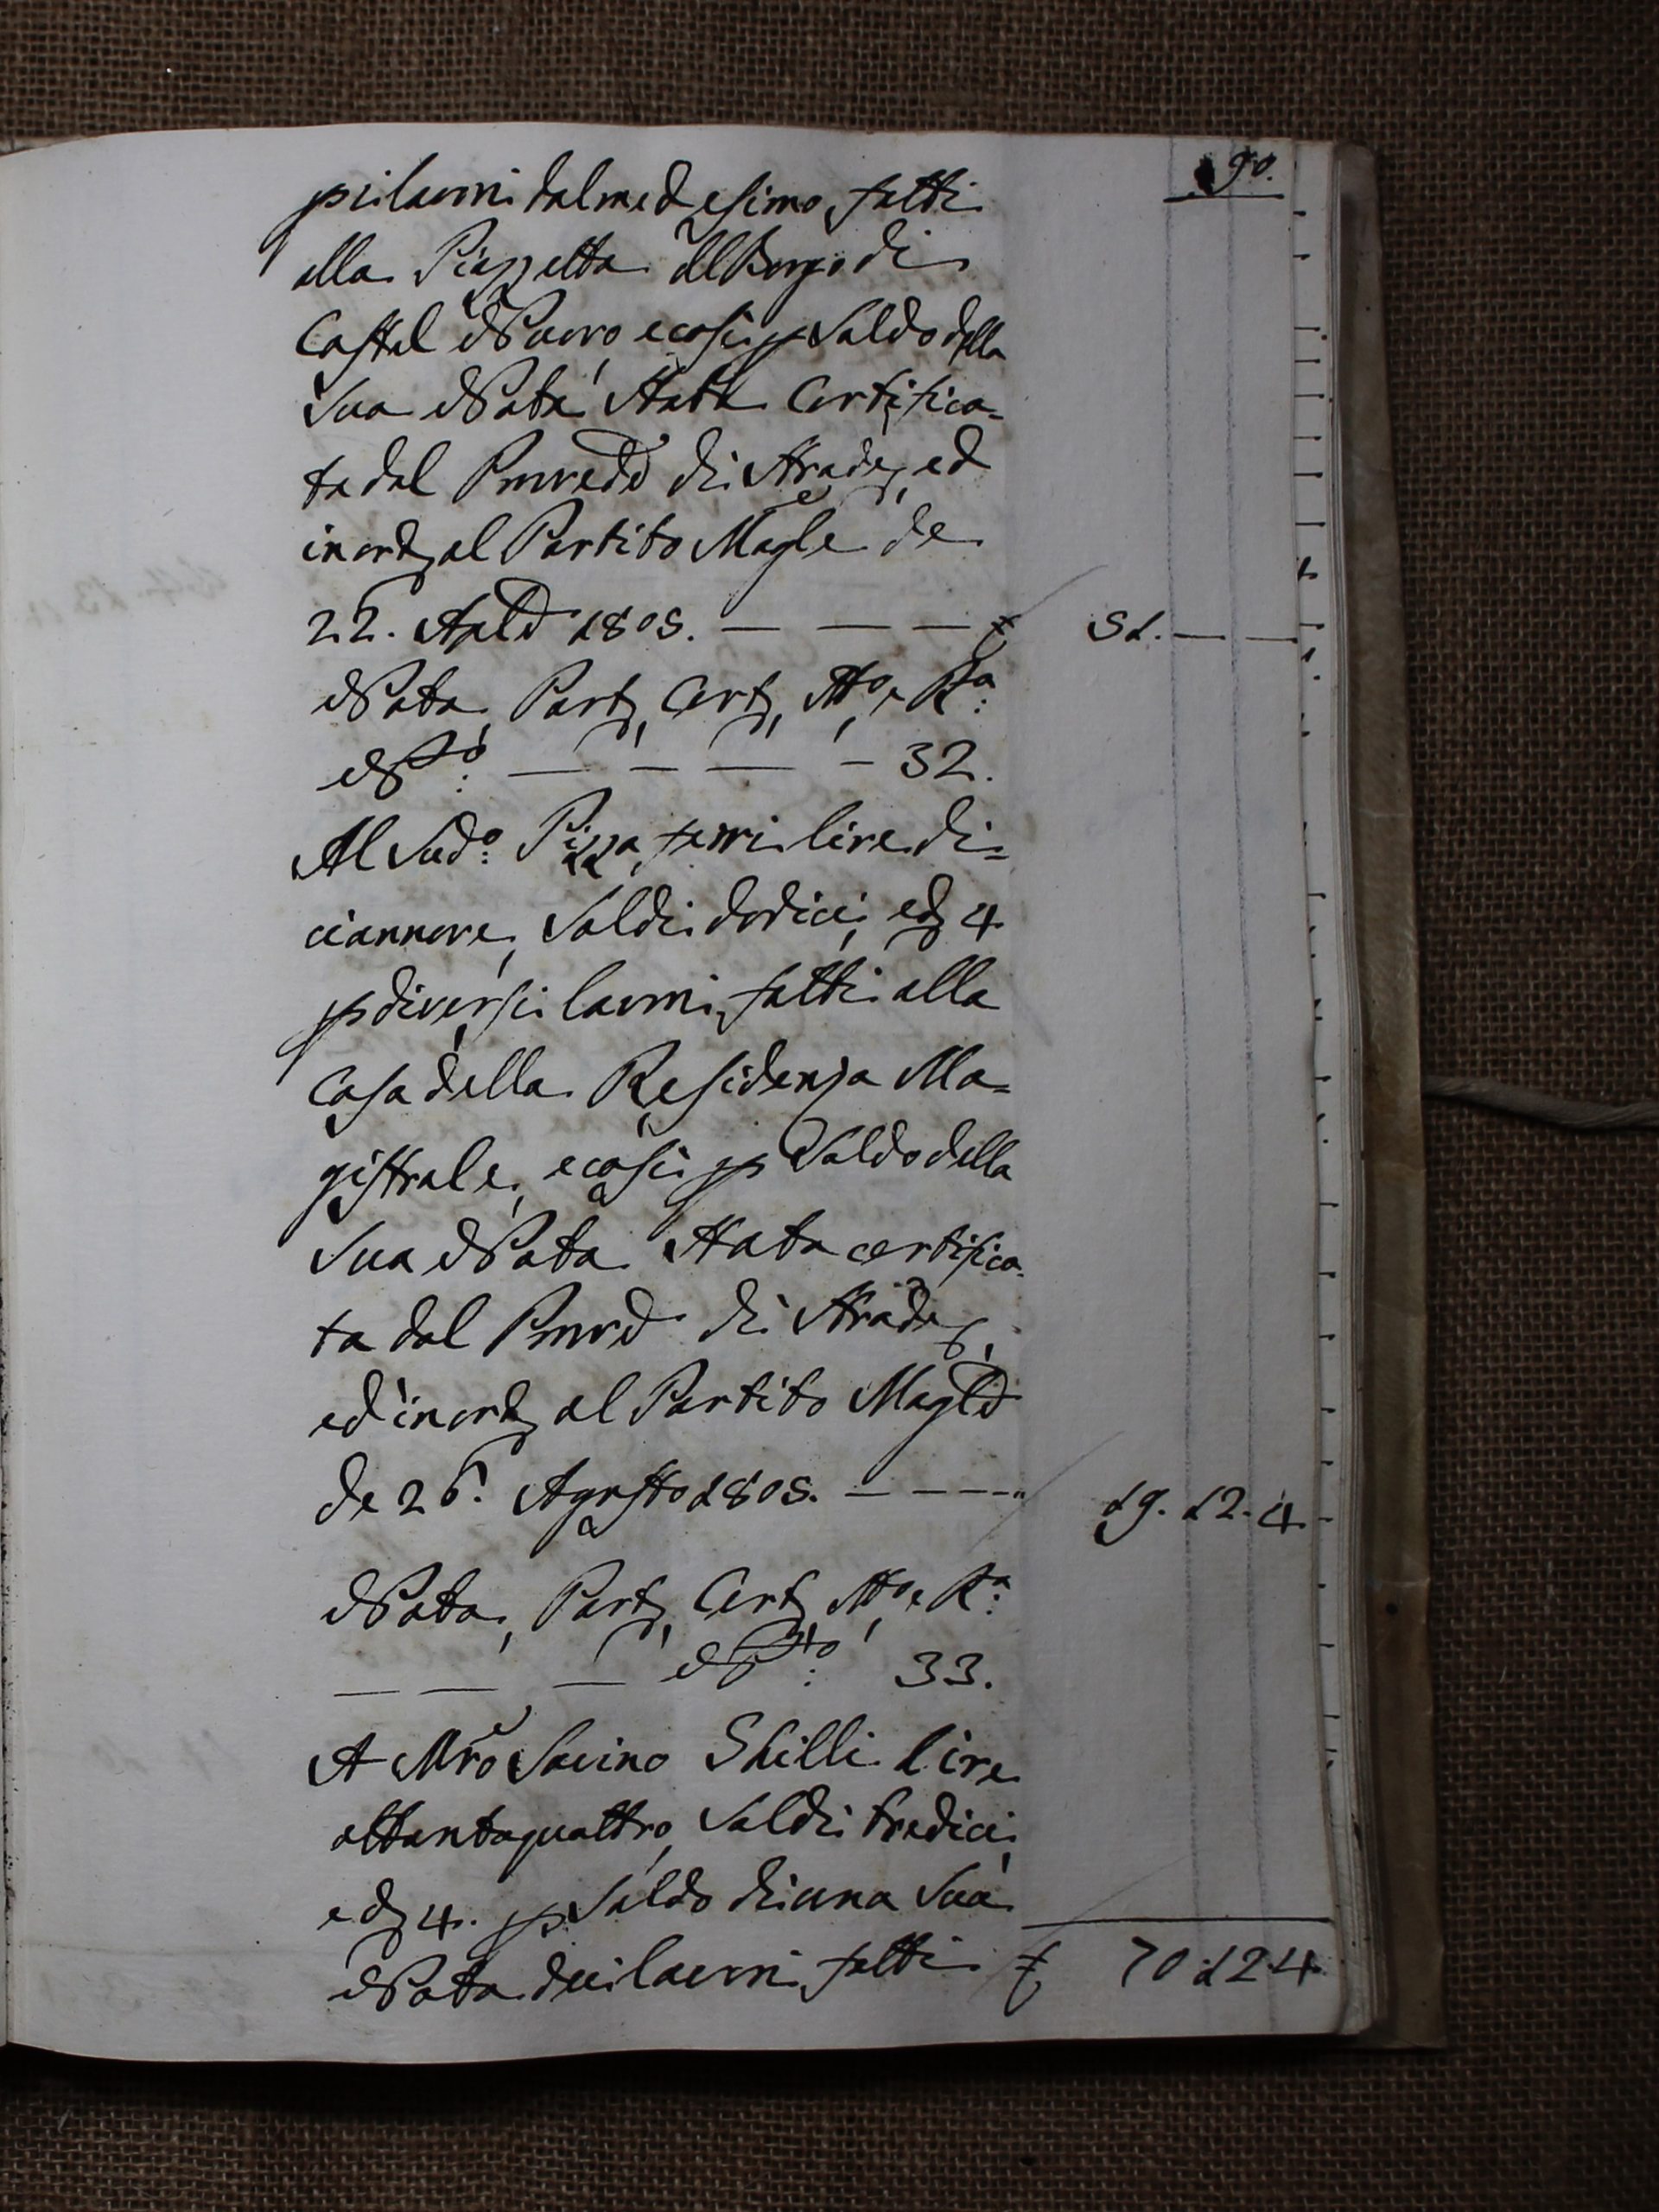 90.
p i lavori dal medesimo fatti
alla Piazzetta al Borgo di
Castel Nuovo e così p Saldo della
Sua Nota Stata Certifica=
ta dal Provved di Strade, ed
in ord al Partito Magle de
22. Apld 1805. — — — £ 51. — —
Nota, Part, Cert, Sto, e Ra:
No: — — — — 32.
Al Sudo: Pizza ferri lire di=
ciannove, Soldi dodici, e d 4
p diversi lavori fatti alla
Casa della Residenza Ma=
gistrale, e così p Saldo della
Sua Nota Stata certifica=
ta dal Provd di Strade,
ed in ord al Partito Magld
de 26. Agosto 1805. — — — " 19. 12. 4
Nota, Part, Cert, Sto, e Ra:
— — — No: 33.
A Mro Savino Shilli lire
ottantaquattro, Soldi tredici,
e d 4. p Saldo di una Sua
Nota dei lavori fatti £ 70 12 4